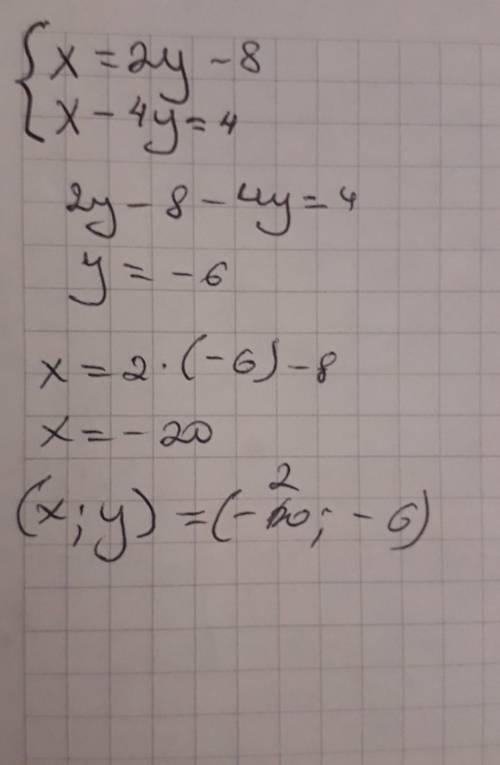 { x = 2y - 8
x - 4y = 4
2y - 8 - 4y = 4
y = -6
x = 2 · (-6) - 8
x = -20
(x; y) = (-20; -6)